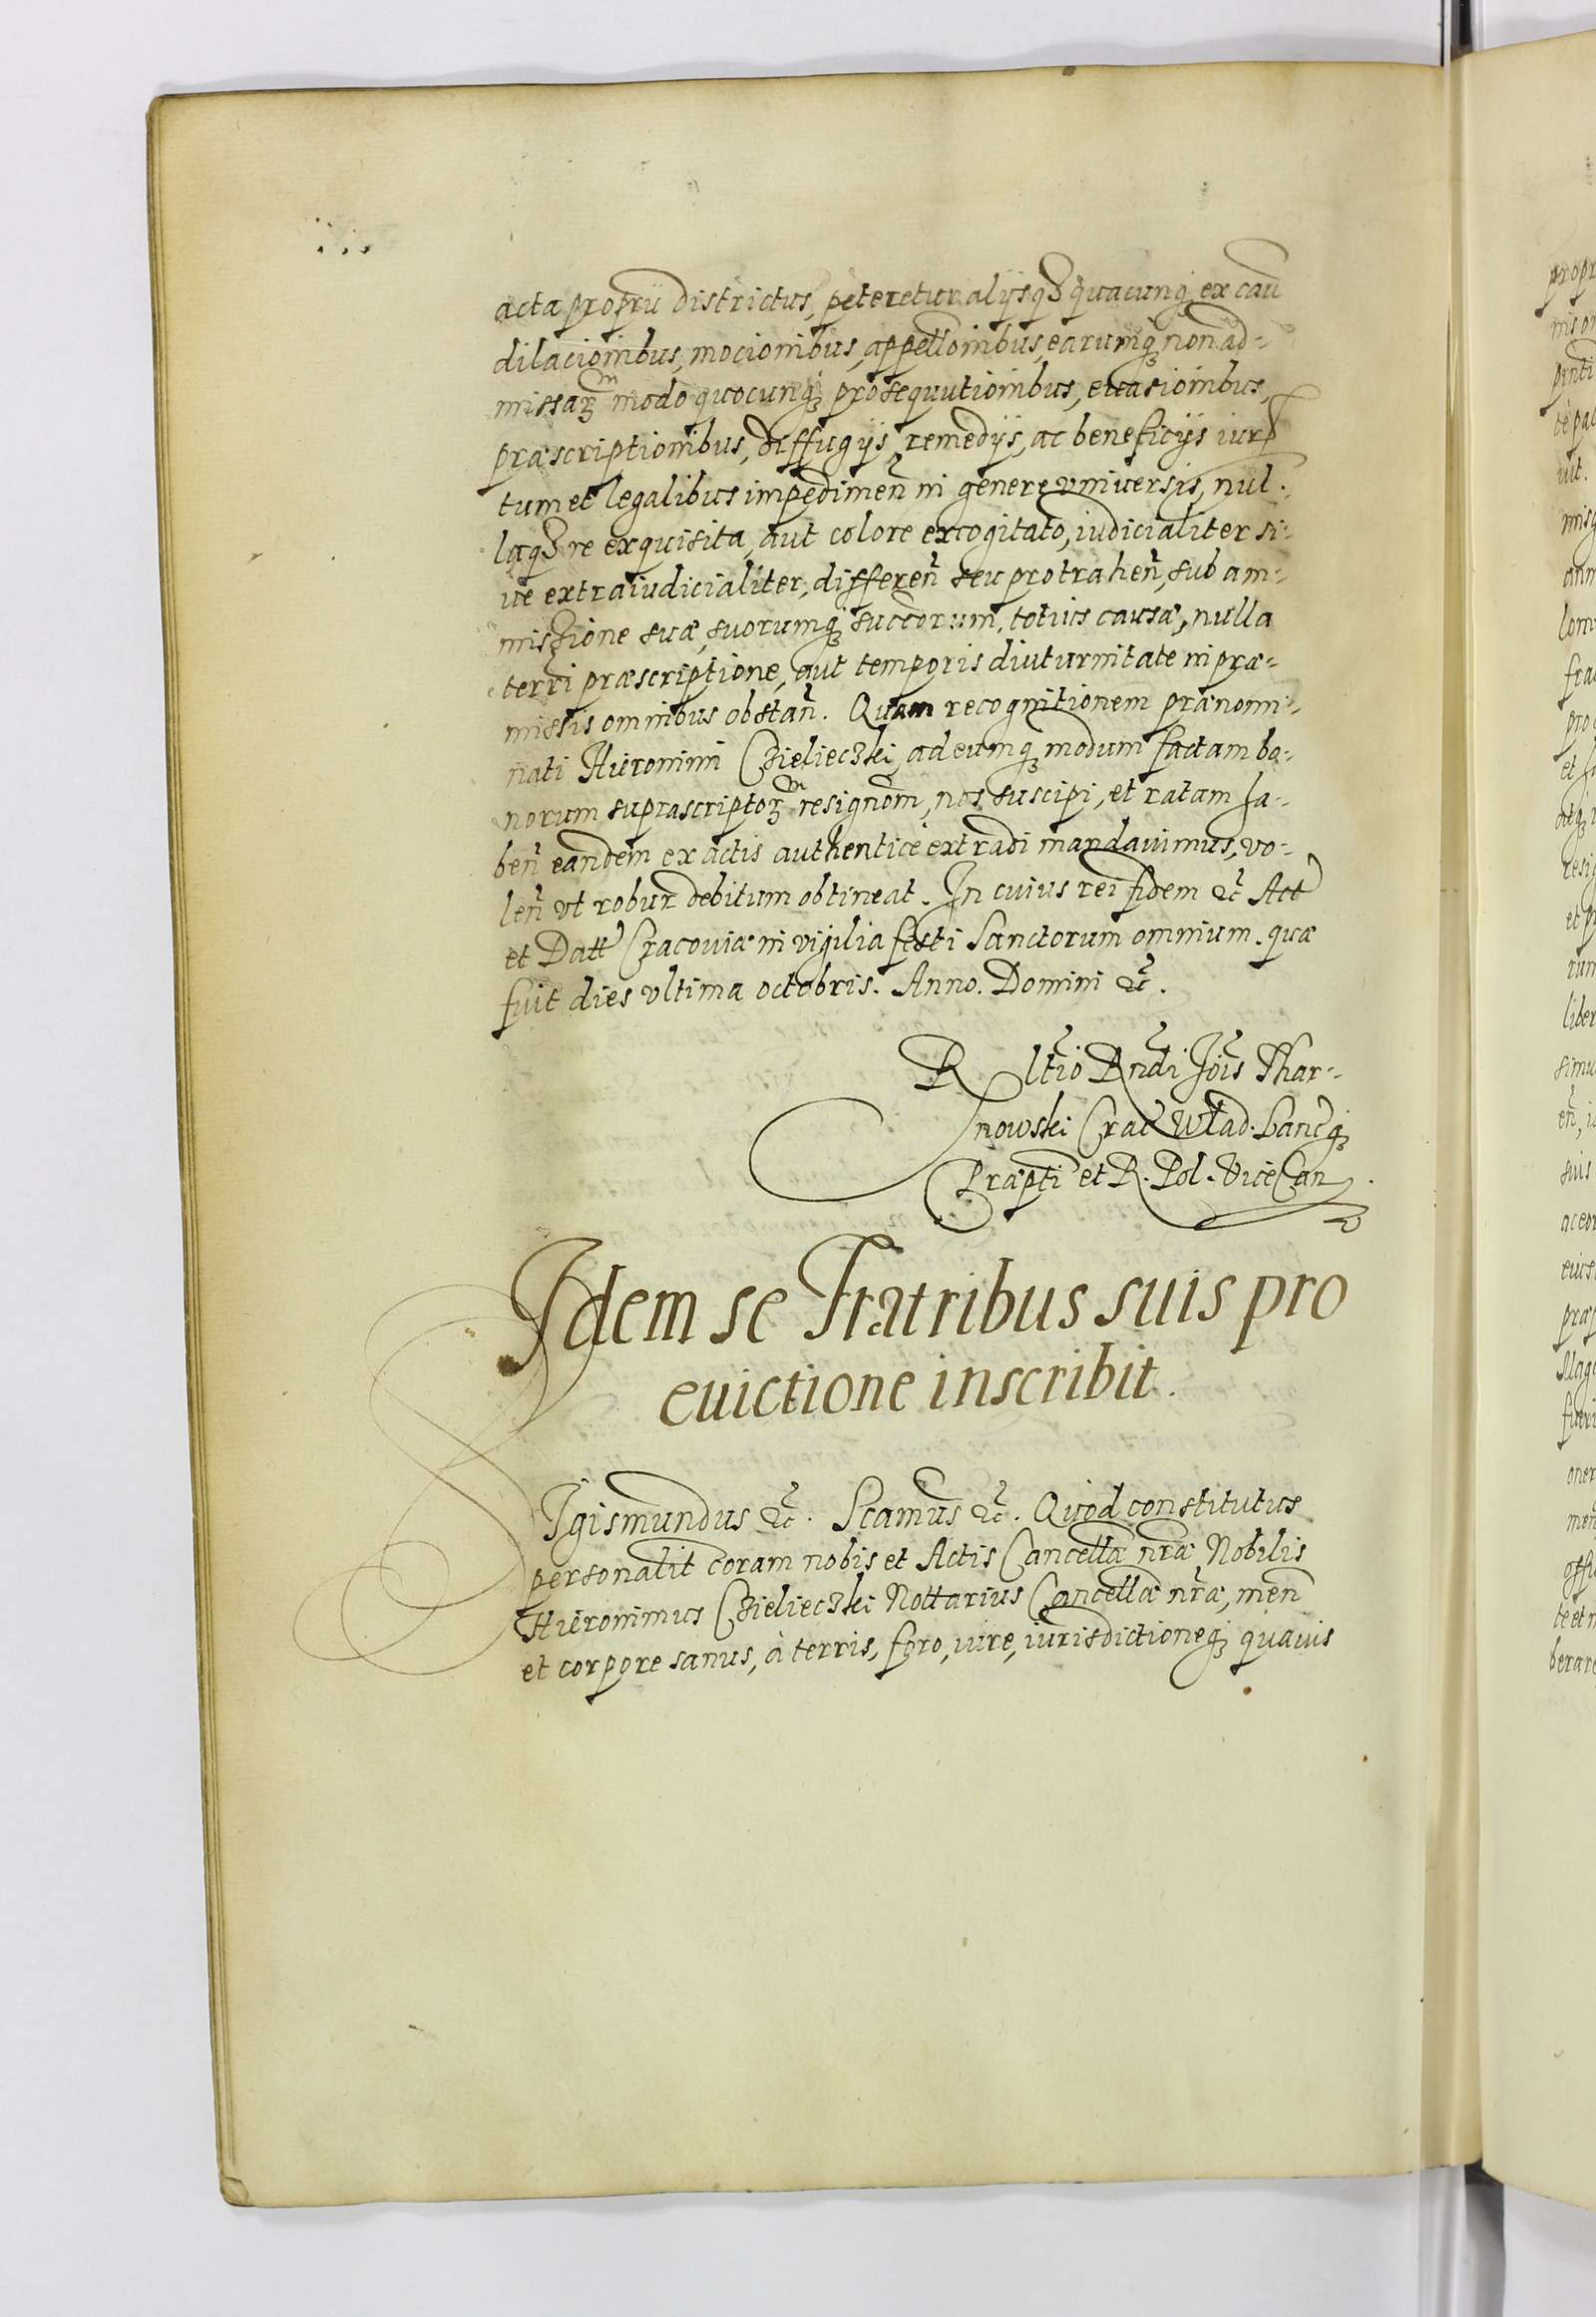 acta proprii districtus, peteretur alijsqȝ quacunqȝ ex cau
dilacioinbus, mocionibus, appelloinbus, earumqȝ non ad-
missaꝝ modo quocunqȝ prosequutioinbus, euasioinbus,
præscriptionibus, diffugijs, remedijs, ac beneficijs iurp
tum et legalibus impedimen̄ in genere vniuersis, nul-
laqȝ re exquisita, aut colore excogitato, iudicialiter si-
ue extraiudicialiter, differen̄ seu protrahen̄, sub am-
missione suæ, suorumqȝ succorum, totius causæ, nulla
terri præscriptione, aut temporis diuturnitate in præ-
missis omnibus obstan̄. Quam recognitionem prænomi-
nati Hieronimi Czielieczki ad eumqȝ modum factam bo-
norum suprascriptoꝝ resignom̄, nos suscipi, et ratam ha-
ben̄ eandem ex actis authenticè extradi mandauimus, vo-
len̄ vt robur debitum obtineat. In cuius rei fidem &c̄ Act
et Datt Cracouiæ in vigilia festi Sanctorum omnium. quæ
fuit dies vltima octobris. Anno. Domini &c̄.
Rltio Rndi Jois Thar-
nowski Crac Wlad. Lancqȝ
Præpti et R. Pol. ViceCan
Idem se Fratribus suis pro
euictione inscribit.
SIgismundus &c̄. Scamus &c̄. Quod constitutus
personalit coram nobis et Actis Cancellæ nr̄æ Nobilis
Hieronimus Czielieczki Nottarius Cancellæ nr̄æ, men̄
et corpore sanus, à terris, foro, iure, iurisdictioneqȝ quauis